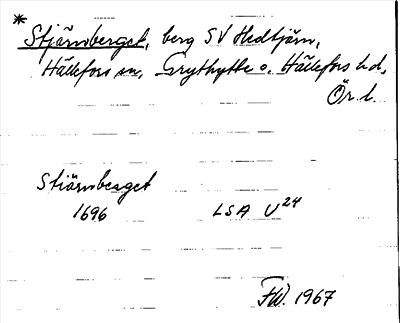 * Stjärnberget, berg SV Hedtjärn,
Hällefors sn, Grythytte o. Hällefors hd,
Ör. l.
Stiärnberget
1696 LSA U24
FW. 1967